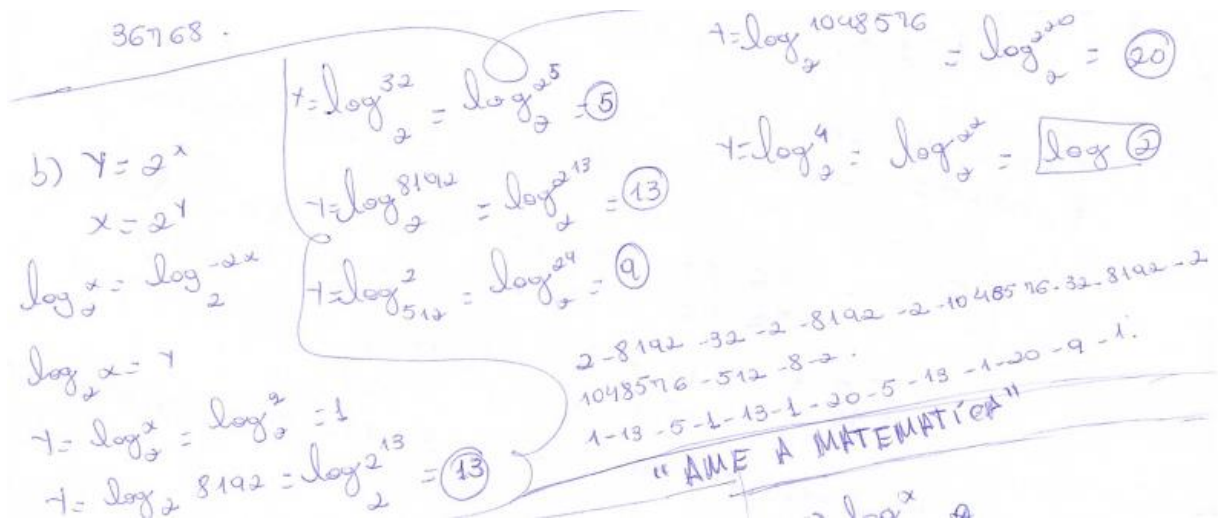 36768.
b) Y = 2^x
x = 2^Y
log_2 x = log_2^-2x
log_2 x = Y
Y = log_2^x = log_2^2 = 1
Y = log_2 8192 = log_2 2^13 = 13
Y = log_2^32 = log_2 2^5 = 5
Y = log_2^8192 = log_2 2^13 = 13
Y = log_512^2 = log_2 = 9
Y = log_2^1048576 = log_2 2^20 = 20
Y = log_2^4 = log_2 2^2 = log 2
2-8192-32-2-8192-2-1048576-32-8192-2
1048576-512-8-2.
1-13-5-1-13-1-20-5-13-1-20-9-1.
"AME A MATEMÁTICA"
log^x